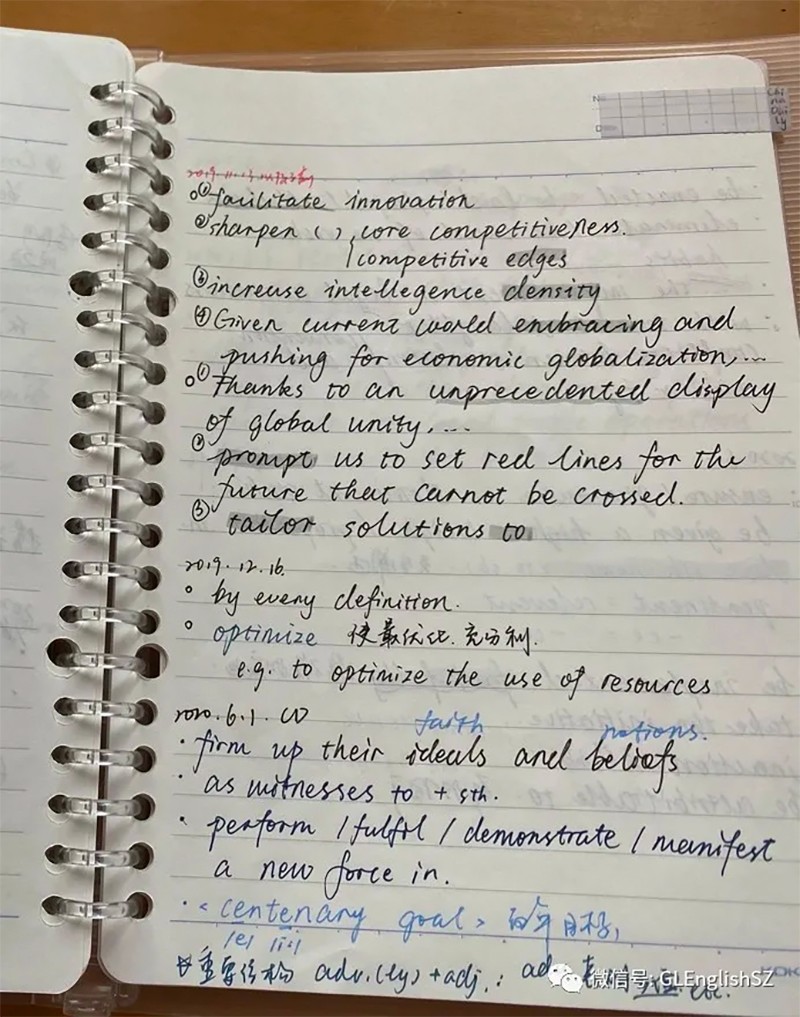 China Daily
2019.11.
①facilitate innovation
②sharpen ( ) core competitiveness.
competitive edges
③increase intellegence density
④Given current world embracing and
pushing for economic globalization, ...
①Thanks to an unprecedented display
of global unity, ...
②prompt us to set red lines for the
future that cannot be crossed.
③tailor solutions to
2019.12.16.
by every definition.
optimize 使最优化.充分利.
e.g. to optimize the use of resources
2020.6.1. CD
faith notions.
· firm up their ideals and beliefs
· as witnesses to + sth.
· perform / fulfil / demonstrate / manifest
a new force in.
· < centenary goal > 百年目标,
重要结构 adv.(ly) + adj. :
微信号: GLEnglishSZ